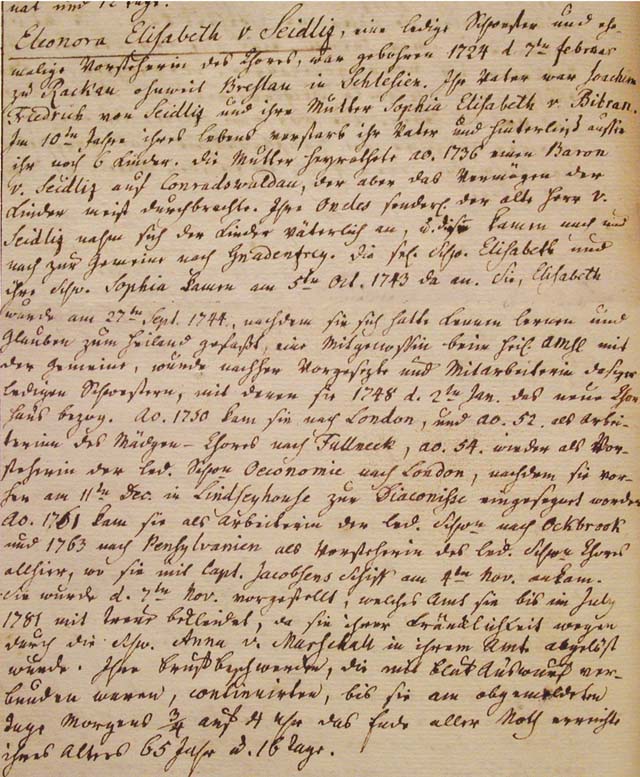 nat und 12 Tage.
Eleonora Elisabeth v Seidliz, eine ledige Schwester und ehe-
malige Vorsteherin des Chores, war gebohren 1724 d. 7ten Februar
zu Rackau ohnweit Breslau in Schlesien. Ihr Vater war Joachim
Friedrich von Seidliz und ihre Mutter Sophia Elisabeth v. Bibran.
Im 10ten Jahre ihres Lebens verstarb ihr Vater und hinterließ ausser
ihr noch 6 Kinder. Die Mutter heyrathete ao. 1736 einen Baron
v. Seidliz auf Conradswaldau, der aber das Vermögen der
Kinder meist durchbrachte. Ihre Oncles sonderl. der alte Herr v.
Seidliz nahm sich der Kinder väterlich an, u. diese kamen nach und
nach zur Gemeine nach Gnadenfrey. Die sel. Schw. Elisabeth und
ihre Schw. Sophia kamen am 5ten Oct. 1743 da an. Sie, Elisabeth
wurde am 27ten Sept. 1744, nachdem sie sich hatte kennen lernen und
Glauben zum Heiland gefaßt, eine Mitgenossin beim heil. Amll mit
der Gemeine, wurde nachher Vorgesezte und Mitarbeiterin dasiger
ledigen Schwestern, mit denen sie 1748 d. 2ten Jan. das neue Chor
haus bezog. Ao. 1750 kam sie nach London, und ao. 52. als Arbei-
terin des Mädgen-Chores nach Fullneck, ao. 54. wieder als Vor-
steherin der led. Schwn Oeconomie nach London, nachdem sie vor-
her am 11ten Dec. in Lindseyhouse zur Diaconisse eingesegnet worden
Ao. 1761 kam sie als Arbeiterin der led. Schwn nach Ockbrook
und 1763 nach Pensylvanien als Vorsteherin des led. Schwn Chores
allhier, wo sie mit Capt. Jacobsens Schiff am 4ten Nov. ankam.
Sie wurde d. 7ten Nov. vorgestellt, welches Amt sie bis im July
1781 mit Treue bekleidet, da sie ihrer Kränklichkeit wegen
durch die Schw. Anna v. Marschall in ihrem Amt abgelöst
wurde. Ihre Brustbeschwerden, die mit Blut Auswurf ver-
bunden waren, continuirten, bis sie am obgemeldeten
Tage Morgens 3/4 auf 4 Uhr das Ende aller Noth erreichte
ihres Alters 65 Jahr u. 16 Tage.